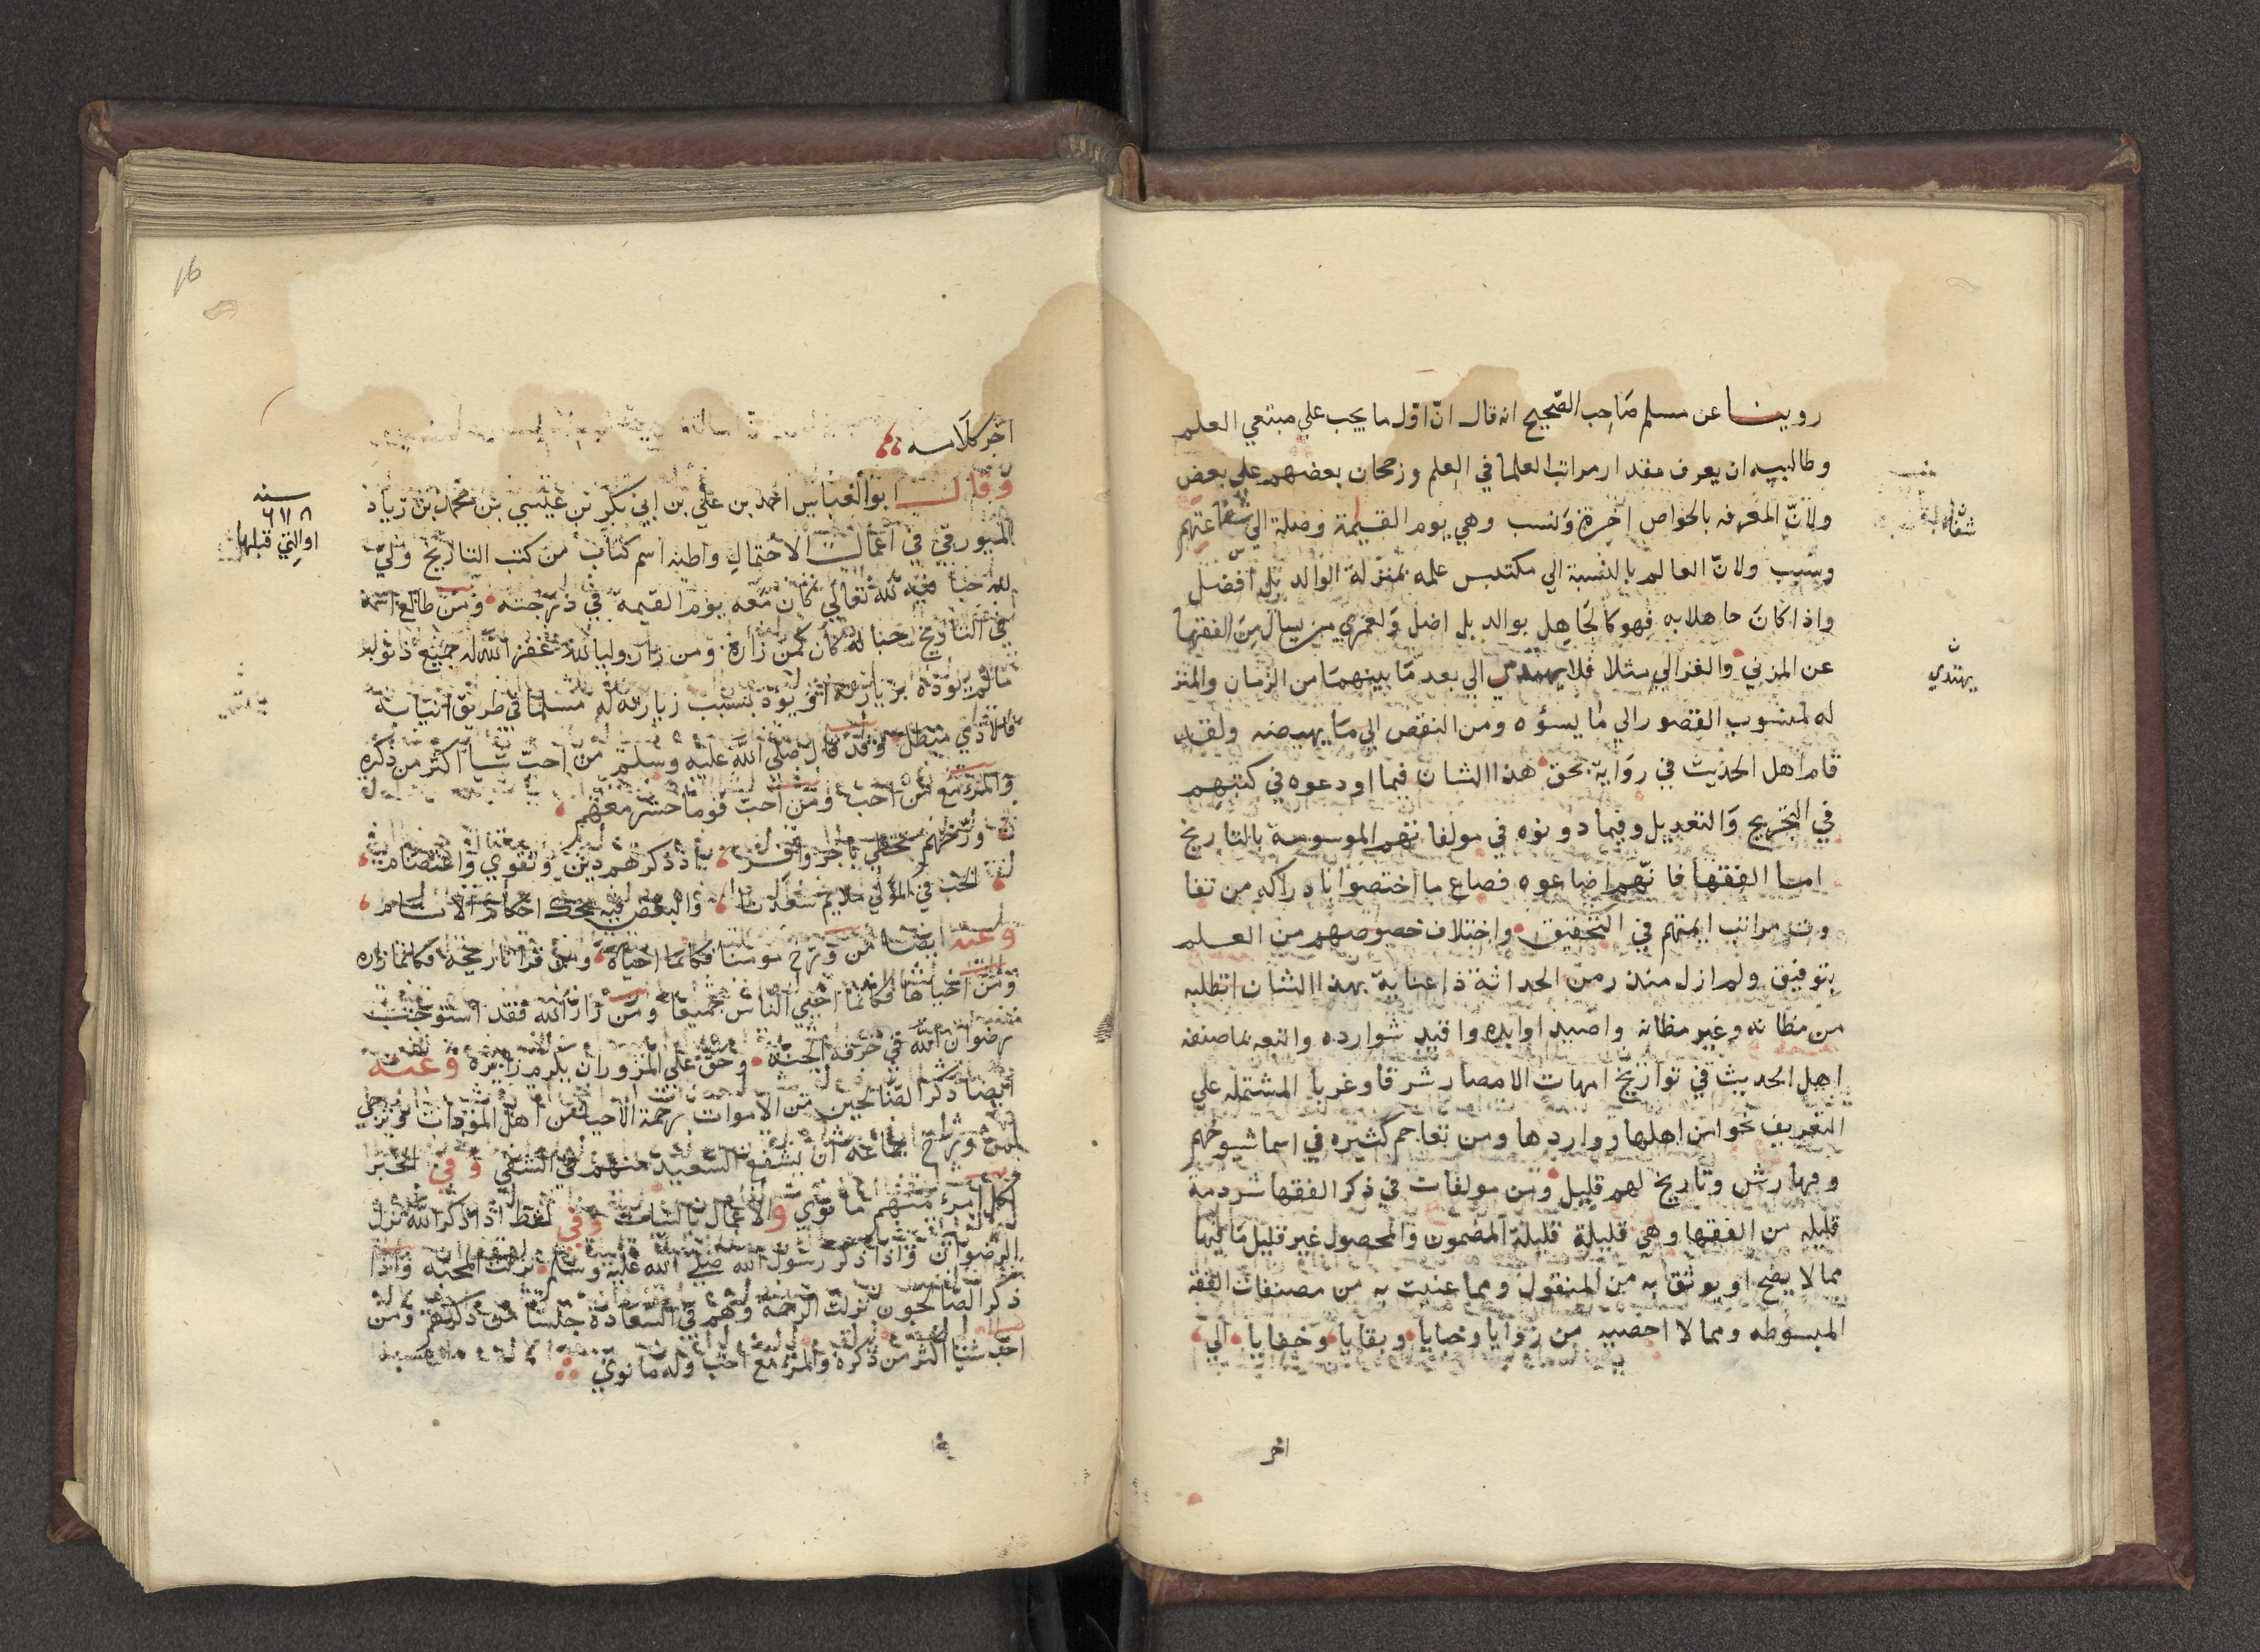 روينا عن مسلم صاحب الصحيح انه قال ان اول ما يجب علي مبتغي العلم
وطالبيه ان يعرف مقدار مراتب العلما في العلم ورجحان بعضهم علي بعض
ولان المعرفه بالخواص اخرة ونسب وهي يوم القيمة وصلة الي شفاعتهم
وسبب ولان العالم بالنسبة الي مكتسب علمه بمنزلة الوالد بل افضل
واذا كان جاهلا به فهو كالجاهل بوالد بل اضل ولعمري من يسال من الفقها
عن المزني والغزالي مثلا فلا يهتدي الي بعد ما بينهما من الزمان والمنز
له لمنسوب القصور الي ما يسؤه ومن النقص الي ما يهيضه ولقد
قام اهل الحديث في رواية بحق هذا الشان فيما اودعوه في كتبهم
في التجريح والتعديل وفيما دونوه في مولفاتهم الموسومة بالتاريخ
اما الفقها فانهم اضاعوه فضاع ما اختصوا بادراكه من تفا
وت مراتب ايمتهم في التحقيق واختلاف خصوصهم من العلم
بتوفيق ولم ازل منذ زمن الحداثة ذا عناية بهذا الشان اتطلبه
من مظانه وغير مظانه واصيد اوابده واقيد شوارده واتتبعه مما صنفه
اهل الحديث في تواريخ امهات الامصار شرقا وغربا المشتمله علي
التعريف بخواص اهلها وواردها ومن معاجم كثيره في اسما شيوخهم
وفهارس وتاريخ لهم قليل ومن مولفات في ذكر الفقها شرذمة
قليله من الفقها وهي قليلة قليلة المضمون والمحصول غير قليل ما فيها
مما لا يصح او يوثق به من المنقول ومما عنيت به من مصنفات الفقه
المبسوطه ومما لا احصيه من زوايا وخبايا وبقايا وخفايا الي
اخر
شفاعتهم
يهتدي
اخر كلامه
وقال ابو العباس احمد بن علي بن ابي بكر بن عيسي بن محمد بن زياد
الميورقي في اعمال الاحتمال واظنه اسم كتاب من كتب التاريخ ولي
لله حبا فيه لله تعالي كان معه يوم القيمة في درجته ومن طالع اسمه
في التاريخ حبا له كان كمن زاره ومن زار وليا لله غفر الله له جميع ذنوبه
ما لم يؤذه بزيارته او يوذ بسبب زيارته له مسلما في طريق اتيانه
فالاذي مبطل وقد قال صلي الله عليه وسلم من احب شيا اكثر من ذكره
والمرء مع من احب ومن احب قوما حشر معهم
ورخهم تحظي باجر وافر اذ ذكرهم دين وتقوي واعتصام
الحب في المولي سعدنا والبغض فيه احكام الانام
وعنه ايضا من ورخ مومنا فكانما احياه ومن قرا تاريخه فكانما زاره
ومن احياها فكانما احيي الناس جميعا ومن زار الله فقد استوجب
رضوان الله في غرفه الجنة وحق علي المزور ان يكرم زايره وعنه
ايضا ذكر الصالحين من الاموات رحمة الاحيا من اهل المودات
ورخ جماعه ان يشفع السعيد منهم في الشقي وفي الخبر
لكل امرء منهم ما نوي والاعمال بالنيات وفي لفظ اذا ذكر الله نزل
الرضوان واذا ذكر رسول الله صلي الله عليه وسلم نزلت المحبة واذا
ذكر الصالحون نزلت الرحمة وهم في السعادة جلسا من ذكرهم ومن
احب شيا اكثر من ذكره والمرء مع احب وله ما نوي
سنه
٦١٨
او التي قبلها
16